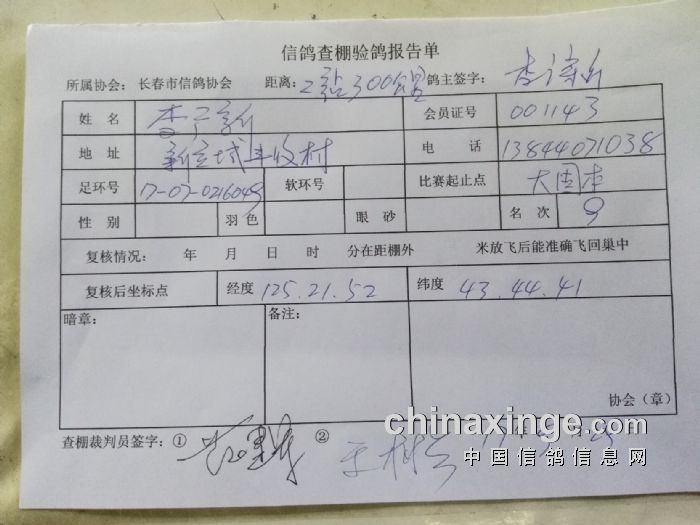 信鸽查棚验鸽报告单
所属协会：长春市信鸽协会 距离：2站300公里 鸽主签字：
姓 名 会员证号 001143
地 址 丰收村 电 话 13844071038
足环号 17-07-0216049 软环号 比赛起止点 大固本
性 别 羽 色 眼 砂 名 次 9
复核情况： 年 月 日 时 分在距棚外 米放飞后能准确飞回巢中
复核后坐标点 经度 125.21.52 纬度 43.44.41
暗章： 备注：
协会（章）
查棚裁判员签字：① ②
chinaxinge.com
中国信鸽信息网